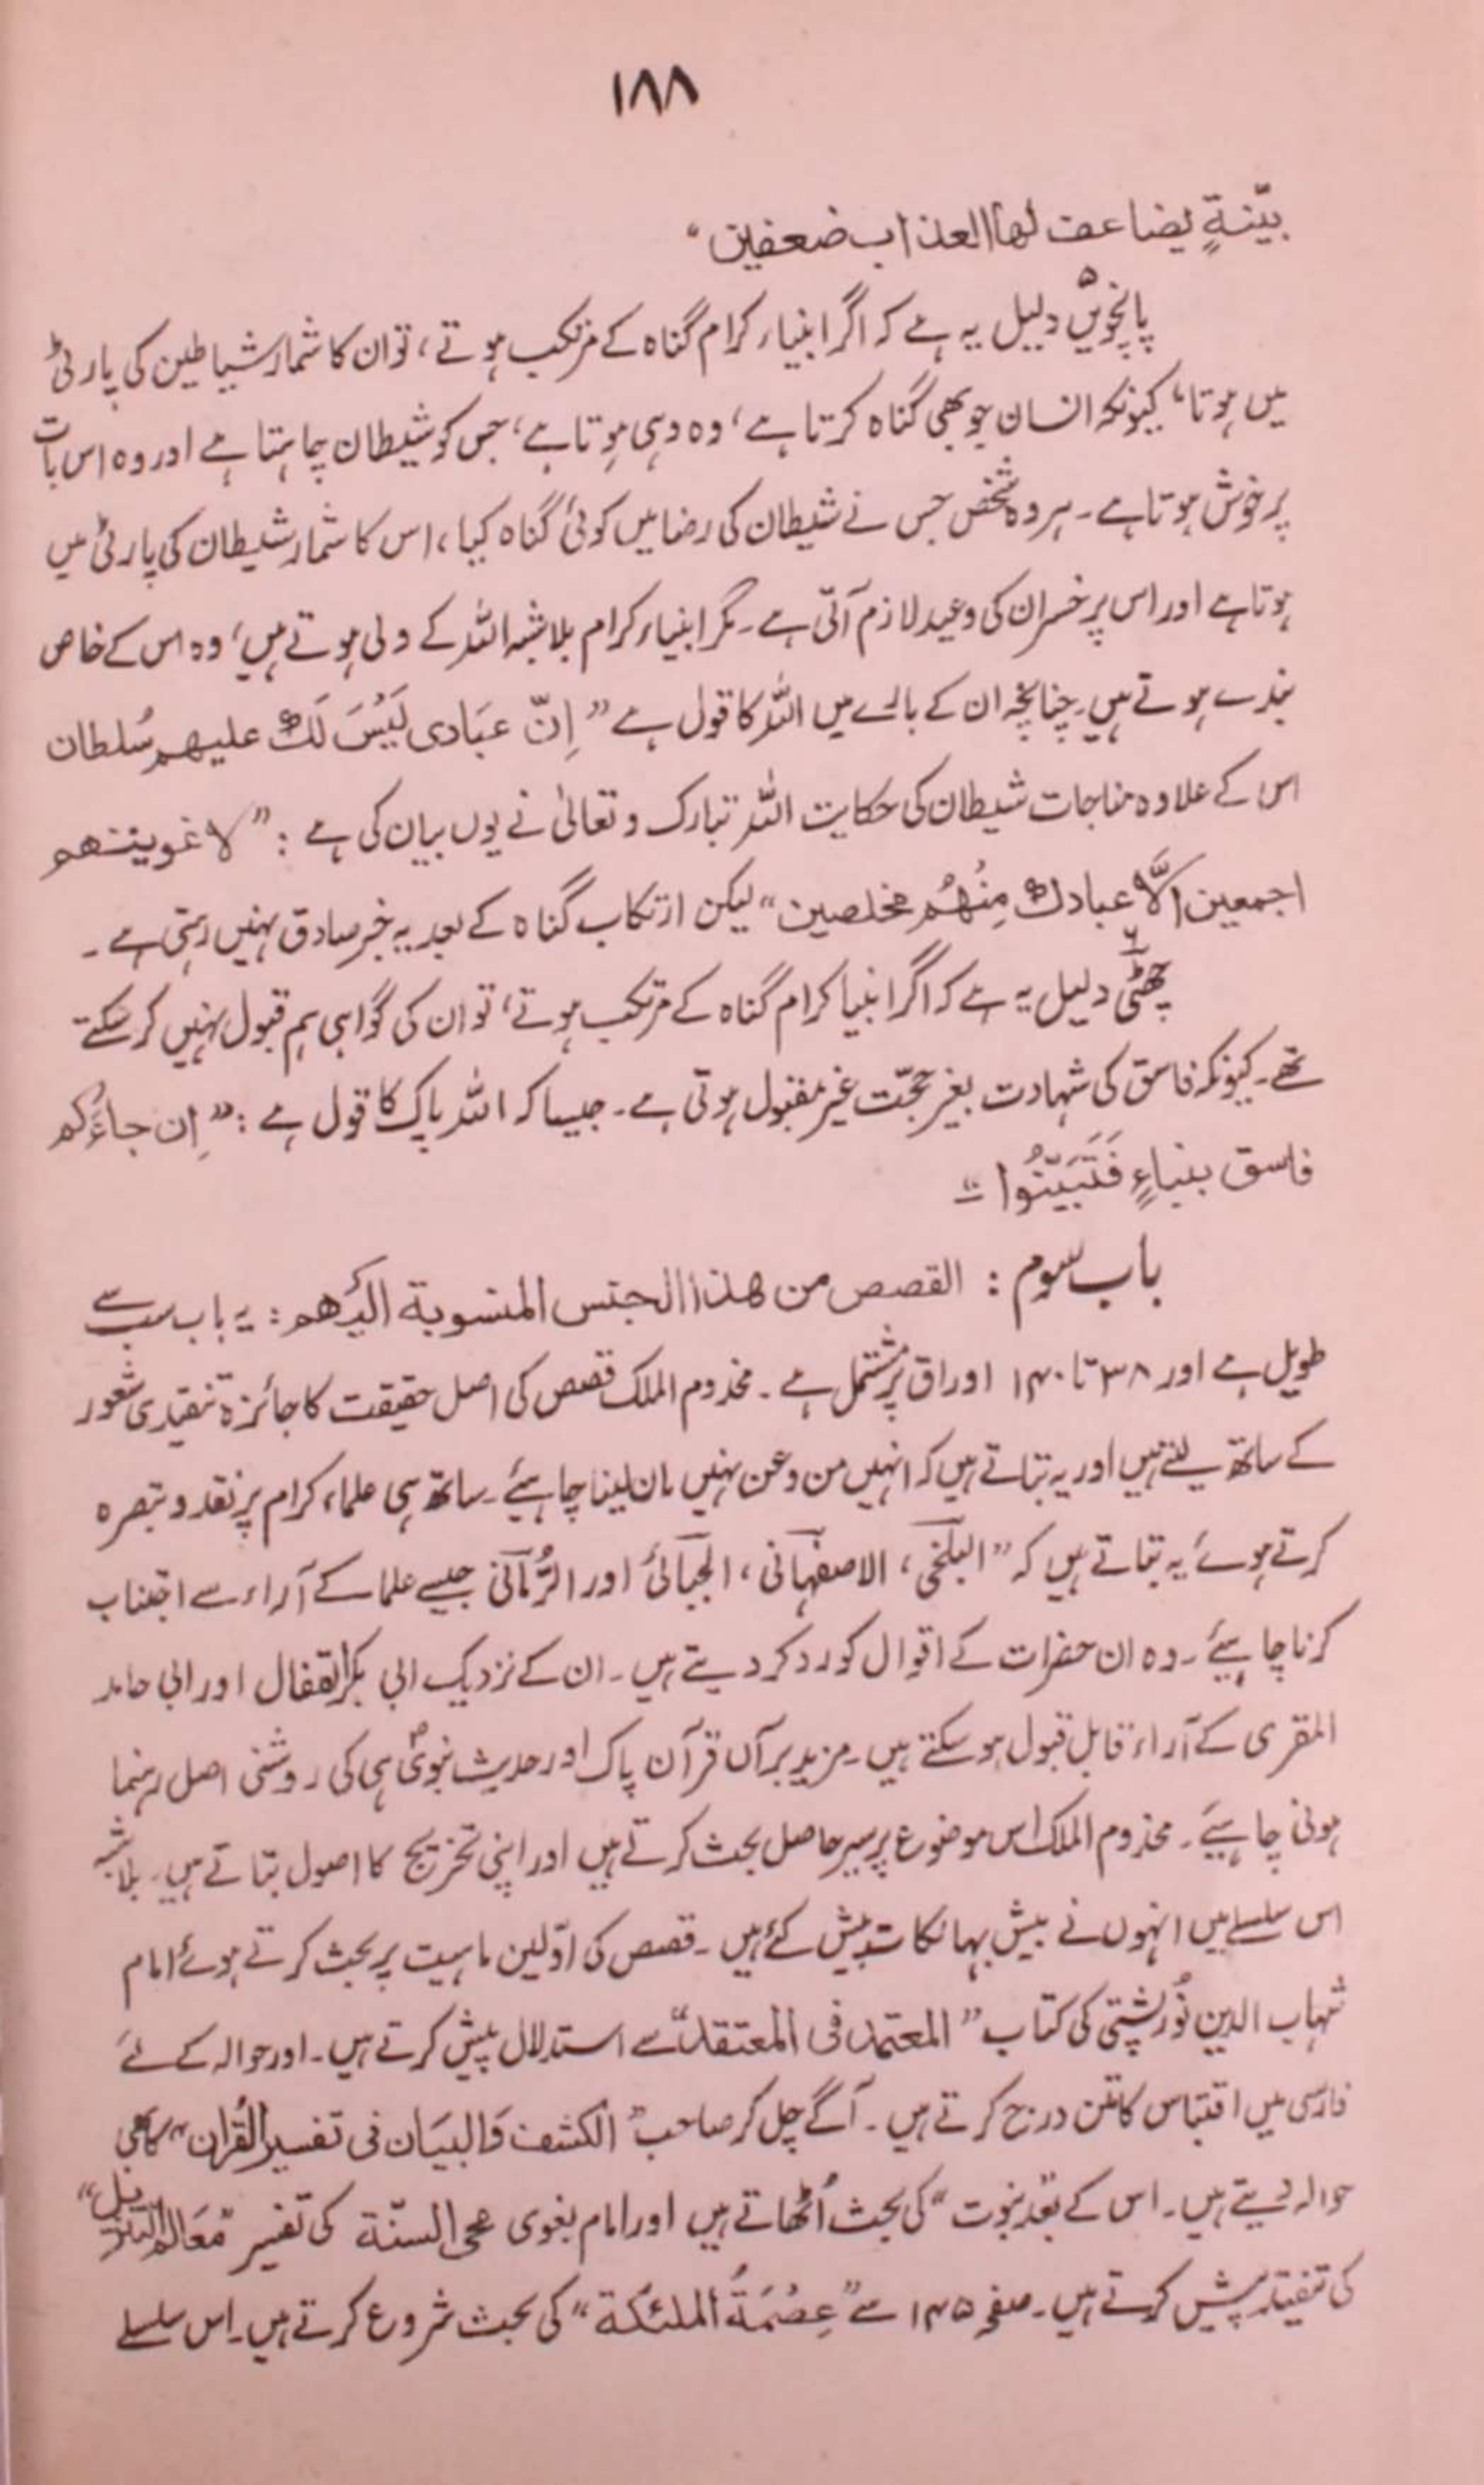 ۱۸۸
بیّنةٍ یضاعف لھا العذاب ضعفین“
پانچویں۵ دلیل یہ ہے کہ اگر انبیاء کرام گناہ کے مرتکب ہوتے، تو ان کا شمار شیاطین کی پارٹی
میں ہوتا، کیونکہ انسان جو بھی گناہ کرتا ہے، وہ وہی ہوتا ہے، جس کو شیطان چاہتا ہے اور وہ اس بات
پر خوش ہوتا ہے۔ ہر وہ شخص جس نے شیطان کی رضا میں کوئی گناہ کیا، اس کا شمار شیطان کی پارٹی میں
ہوتا ہے اور اس پر خسران کی وعید لازم آتی ہے۔ مگر انبیاء کرام بلاشبہ اللہ کے ولی ہوتے ہیں، وہ اس کے خاص
بندے ہوتے ہیں۔ چنانچہ ان کے بارے میں اللہ کا قول ہے ”اِنّ عبَادی لَیْسَ لَکَ علیھم سُلطان
اس کے علاوہ مناجات شیطان کی حکایت اللہ تبارک و تعالیٰ نے یوں بیان کی ہے: ”لاغوینھم
اجمعین اِلَّا عبادک مِنْھُم مخلصین“ لیکن ارتکاب گناہ کے بعد یہ خبر صادق نہیں رہتی ہے۔
چھٹی۶ دلیل یہ ہے کہ اگر انبیا کرام گناہ کے مرتکب ہوتے، تو ان کی گواہی ہم قبول نہیں کر سکتے
تھے۔ کیونکہ فاسق کی شہادت بغیر حجّت غیر مقبول ہوتی ہے۔ جیسا کہ اللہ پاک کا قول ہے: ”اِن جاءَکُم
فاسق بنباءٍ فَتَبَیّنُوا“
باب سوم: القصص من ھذا الجنس المنسوبة الیْھم: یہ باب سب سے
طویل ہے اور ۳۸ تا ۱۴۰ اوراق پر مشتمل ہے۔ مخدوم الملک قصص کی اصل حقیقت کا جائزہ تنقیدی شعور
کے ساتھ لیتے ہیں اور یہ بتاتے ہیں کہ انہیں من و عن نہیں مان لینا چاہیئے۔ ساتھ ہی علماء کرام پر نقد و تبصرہ
کرتے ہوئے یہ بتاتے ہیں کہ ”البلخی، الاصفہانی، الجبائی اور الرُّمّانی جیسے علما کے آراء سے اجتناب
کرنا چاہیئے۔ وہ ان حضرات کے اقوال کو رد کر دیتے ہیں۔ ان کے نزدیک ابی بکر القفال اور ابی حامد
المقری کے آراء قابل قبول ہو سکتے ہیں۔ مزید برآں قرآن پاک اور حدیث نبویؐ ہی کی روشنی اصل رہنما
ہونی چاہیئے۔ مخدوم الملک اس موضوع پر سیر حاصل بحث کرتے ہیں اور اپنی تخریج کا اصول بتاتے ہیں۔ بلاشبہ
اس سلسلے میں انہوں نے بیش بہا نکات پیش کئے ہیں۔ قصص کی اوّلین ماہیت پر بحث کرتے ہوئے امام
شہاب الدین تُورپشتی کی کتاب ”المعتمد فی المعتقد“ سے استدلال پیش کرتے ہیں۔ اور حوالہ کے لئے
فارسی میں اقتباس کا متن درج کرتے ہیں۔ آگے چل کر صاحب ”الکشف وَالبیَان فی تفسیر القُرآن“ کا بھی
حوالہ دیتے ہیں۔ اس کے بعد ”نبوت“ کی بحث اُٹھاتے ہیں اور امام بغوی محی السنّة کی تفسیر ”مَعَالم التنزیل“
کی تنقید پیش کرتے ہیں۔ صفحہ ۱۴۵ سے ”عِصْمَةُ الملئکة“ کی بحث شروع کرتے ہیں۔ اس سلسلے